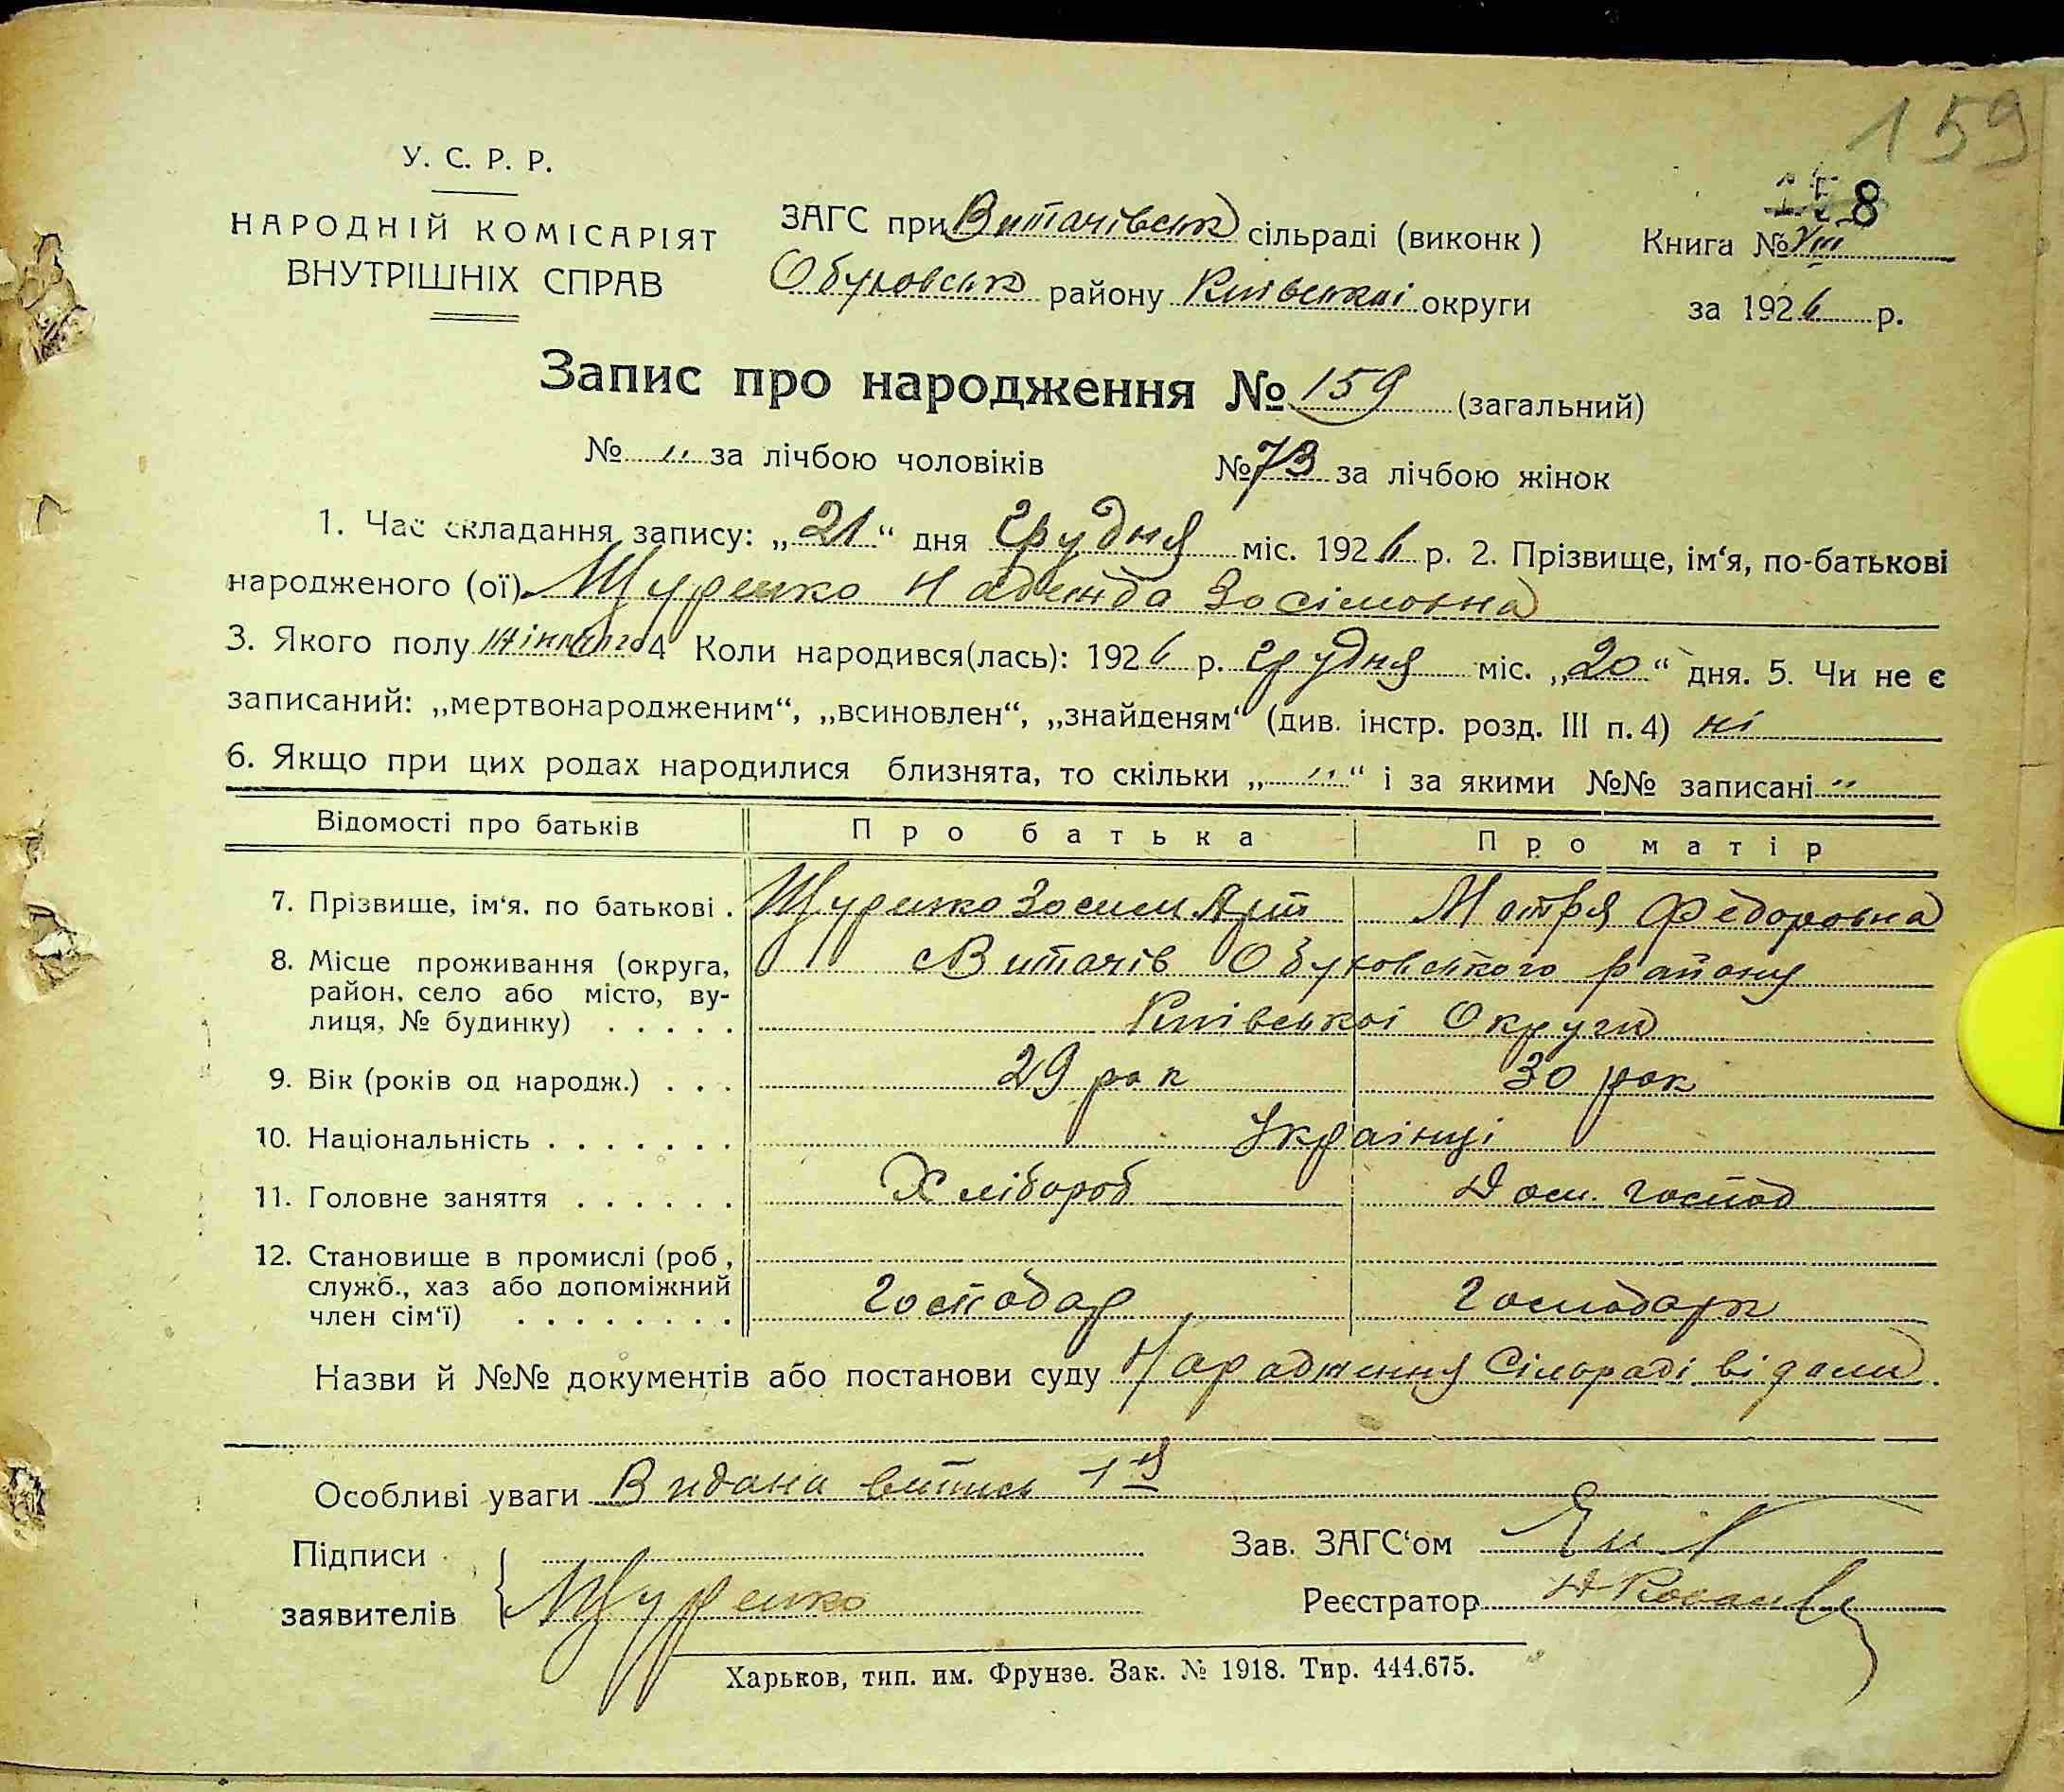 159
У. С. Р. Р.
8
НАРОДНІЙ КОМІСАРІЯТ
ВНУТРІШНІХ СПРАВ
ЗАГС при Витачівськ сільраді (виконк)
Книга № VIII
Обуховськ району Київської округи
за 1926 р.
Запис про народження № 159 (загальний)
№ " за лічбою чоловіків № 73 за лічбою жінок
1. Час складання запису: „21“ дня Грудня міс. 1926 р. 2. Прізвище, ім‘я, по-батькові
народженого (ої) Щуренко Надежда Зосімовна
3. Якого полу жіночого 4 Коли народився(лась): 1926 р. Грудня міс. „20“ дня. 5. Чи не є
записаний: „мертвонародженим“, „всиновлен“, „знайденям“ (див. інстр. розд. III п. 4) ні
6. Якщо при цих родах народилися близнята, то скільки „ " “ і за якими №№ записані "
Відомості про батьків Про батька Про матір
7. Прізвище, ім‘я. по батькові . Щуренко Зосим Арт Мотря Федоровна
8. Місце проживання (округа, Витачів Обуховського району
район, село або місто, ву-
лиця, № будинку) . . . . . Київської Округи
9. Вік (років од народж.) . . . 29 рок 30 рок
10. Національність . . . . . . . Українці
11. Головне заняття . . . . . . Хлібороб Дом. господ
12. Становище в промислі (роб,
служб., хаз або допоміжний Господар Господарк
член сім‘ї) . . . . . . . .
Назви й №№ документів або постанови суду Народження Сільраді відоми
Особливі уваги Видана випись 1я
Підписи
заявителів Щуренко
Зав. ЗАГС‘ом
Реєстратор
Харьков, тип. им. Фрунзе. Зак. № 1918. Тир. 444.675.